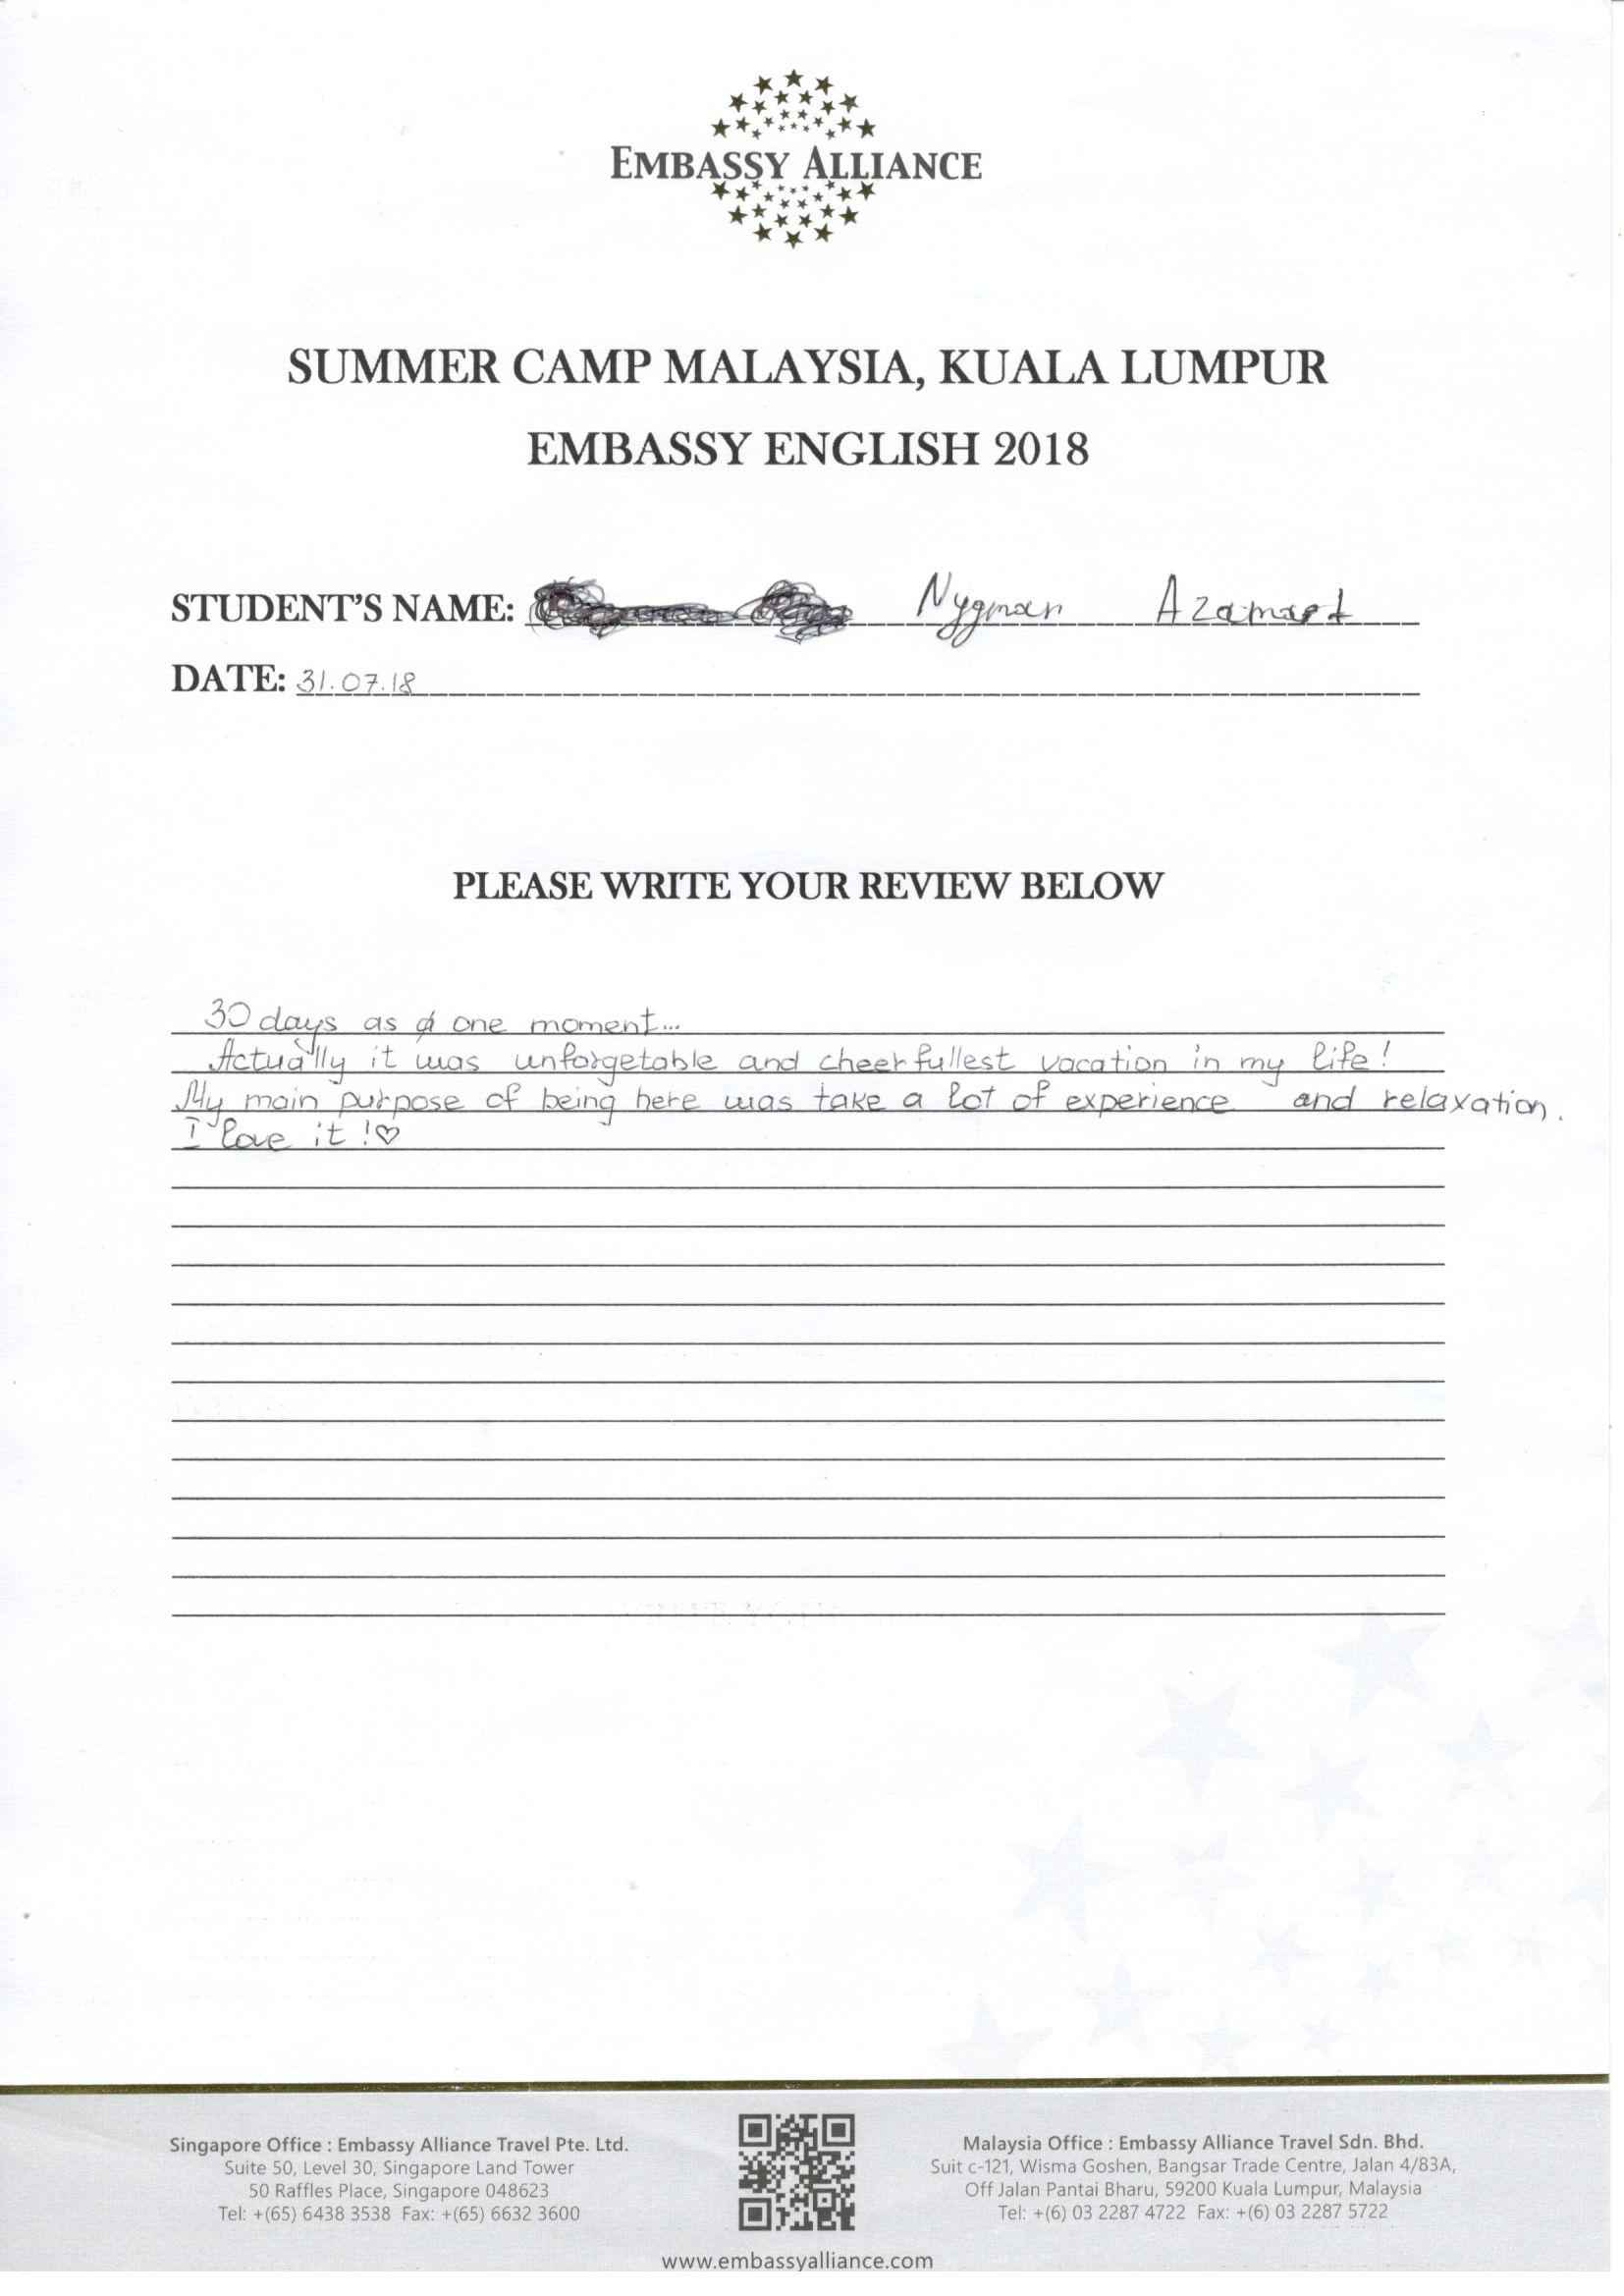 EMBASSY ALLIANCE
SUMMER CAMP MALAYSIA, KUALA LUMPUR
EMBASSY ENGLISH 2018
STUDENT'S NAME: Nygman Azamart
DATE: 31.07.18
PLEASE WRITE YOUR REVIEW BELOW
30 days as one moment...
Actually it was unforgetable and cheerfullest vacation in my life!
My main purpose of being here was take a lot of experience and relaxation.
I love it!♡
Singapore Office : Embassy Alliance Travel Pte. Ltd.
Suite 50, Level 30, Singapore Land Tower
50 Raffles Place, Singapore 048623
Tel: +(65) 6438 3538 Fax: +(65) 6632 3600
Malaysia Office : Embassy Alliance Travel Sdn. Bhd.
Suit c-121, Wisma Goshen, Bangsar Trade Centre, Jalan 4/83A,
Off Jalan Pantai Bharu, 59200 Kuala Lumpur, Malaysia
Tel: +(6) 03 2287 4722 Fax: +(6) 03 2287 5722
www.embassyalliance.com